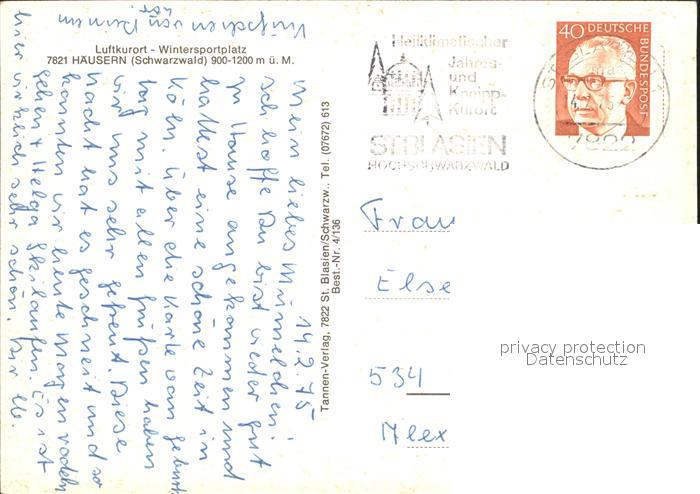 Luftkurort - Wintersportplatz
7821 HÄUSERN (Schwarzwald) 900-1200 m ü. M.
14.2.75
Mein liebes Mummelchen!
Ich hoffe Du bist wieder gut
zu Hause angekommen und
hattest eine schöne Zeit in
Köln. Über die Karte vom
tag mit allen Grüßen haben
wir uns sehr gefreut. Diese
Nacht hat es geschneit und so
konnten wir heute Morgen rodeln
gehen + Helga Skilaufen. Es ist
hier wirklich sehr schön. Dir
von
Tannen-Verlag, 7822 St. Blasien/Schwarzw., Tel. (07672) 613
Best.-Nr. 4/136
Heilklimatischer
Jahres-
und
Kneipp-
Kurort
ST BLASIEN
HOCHSCHWARZWALD
40 DEUTSCHE
BUNDESPOST
7822
Frau
Else
534
privacy protection
Datenschutz